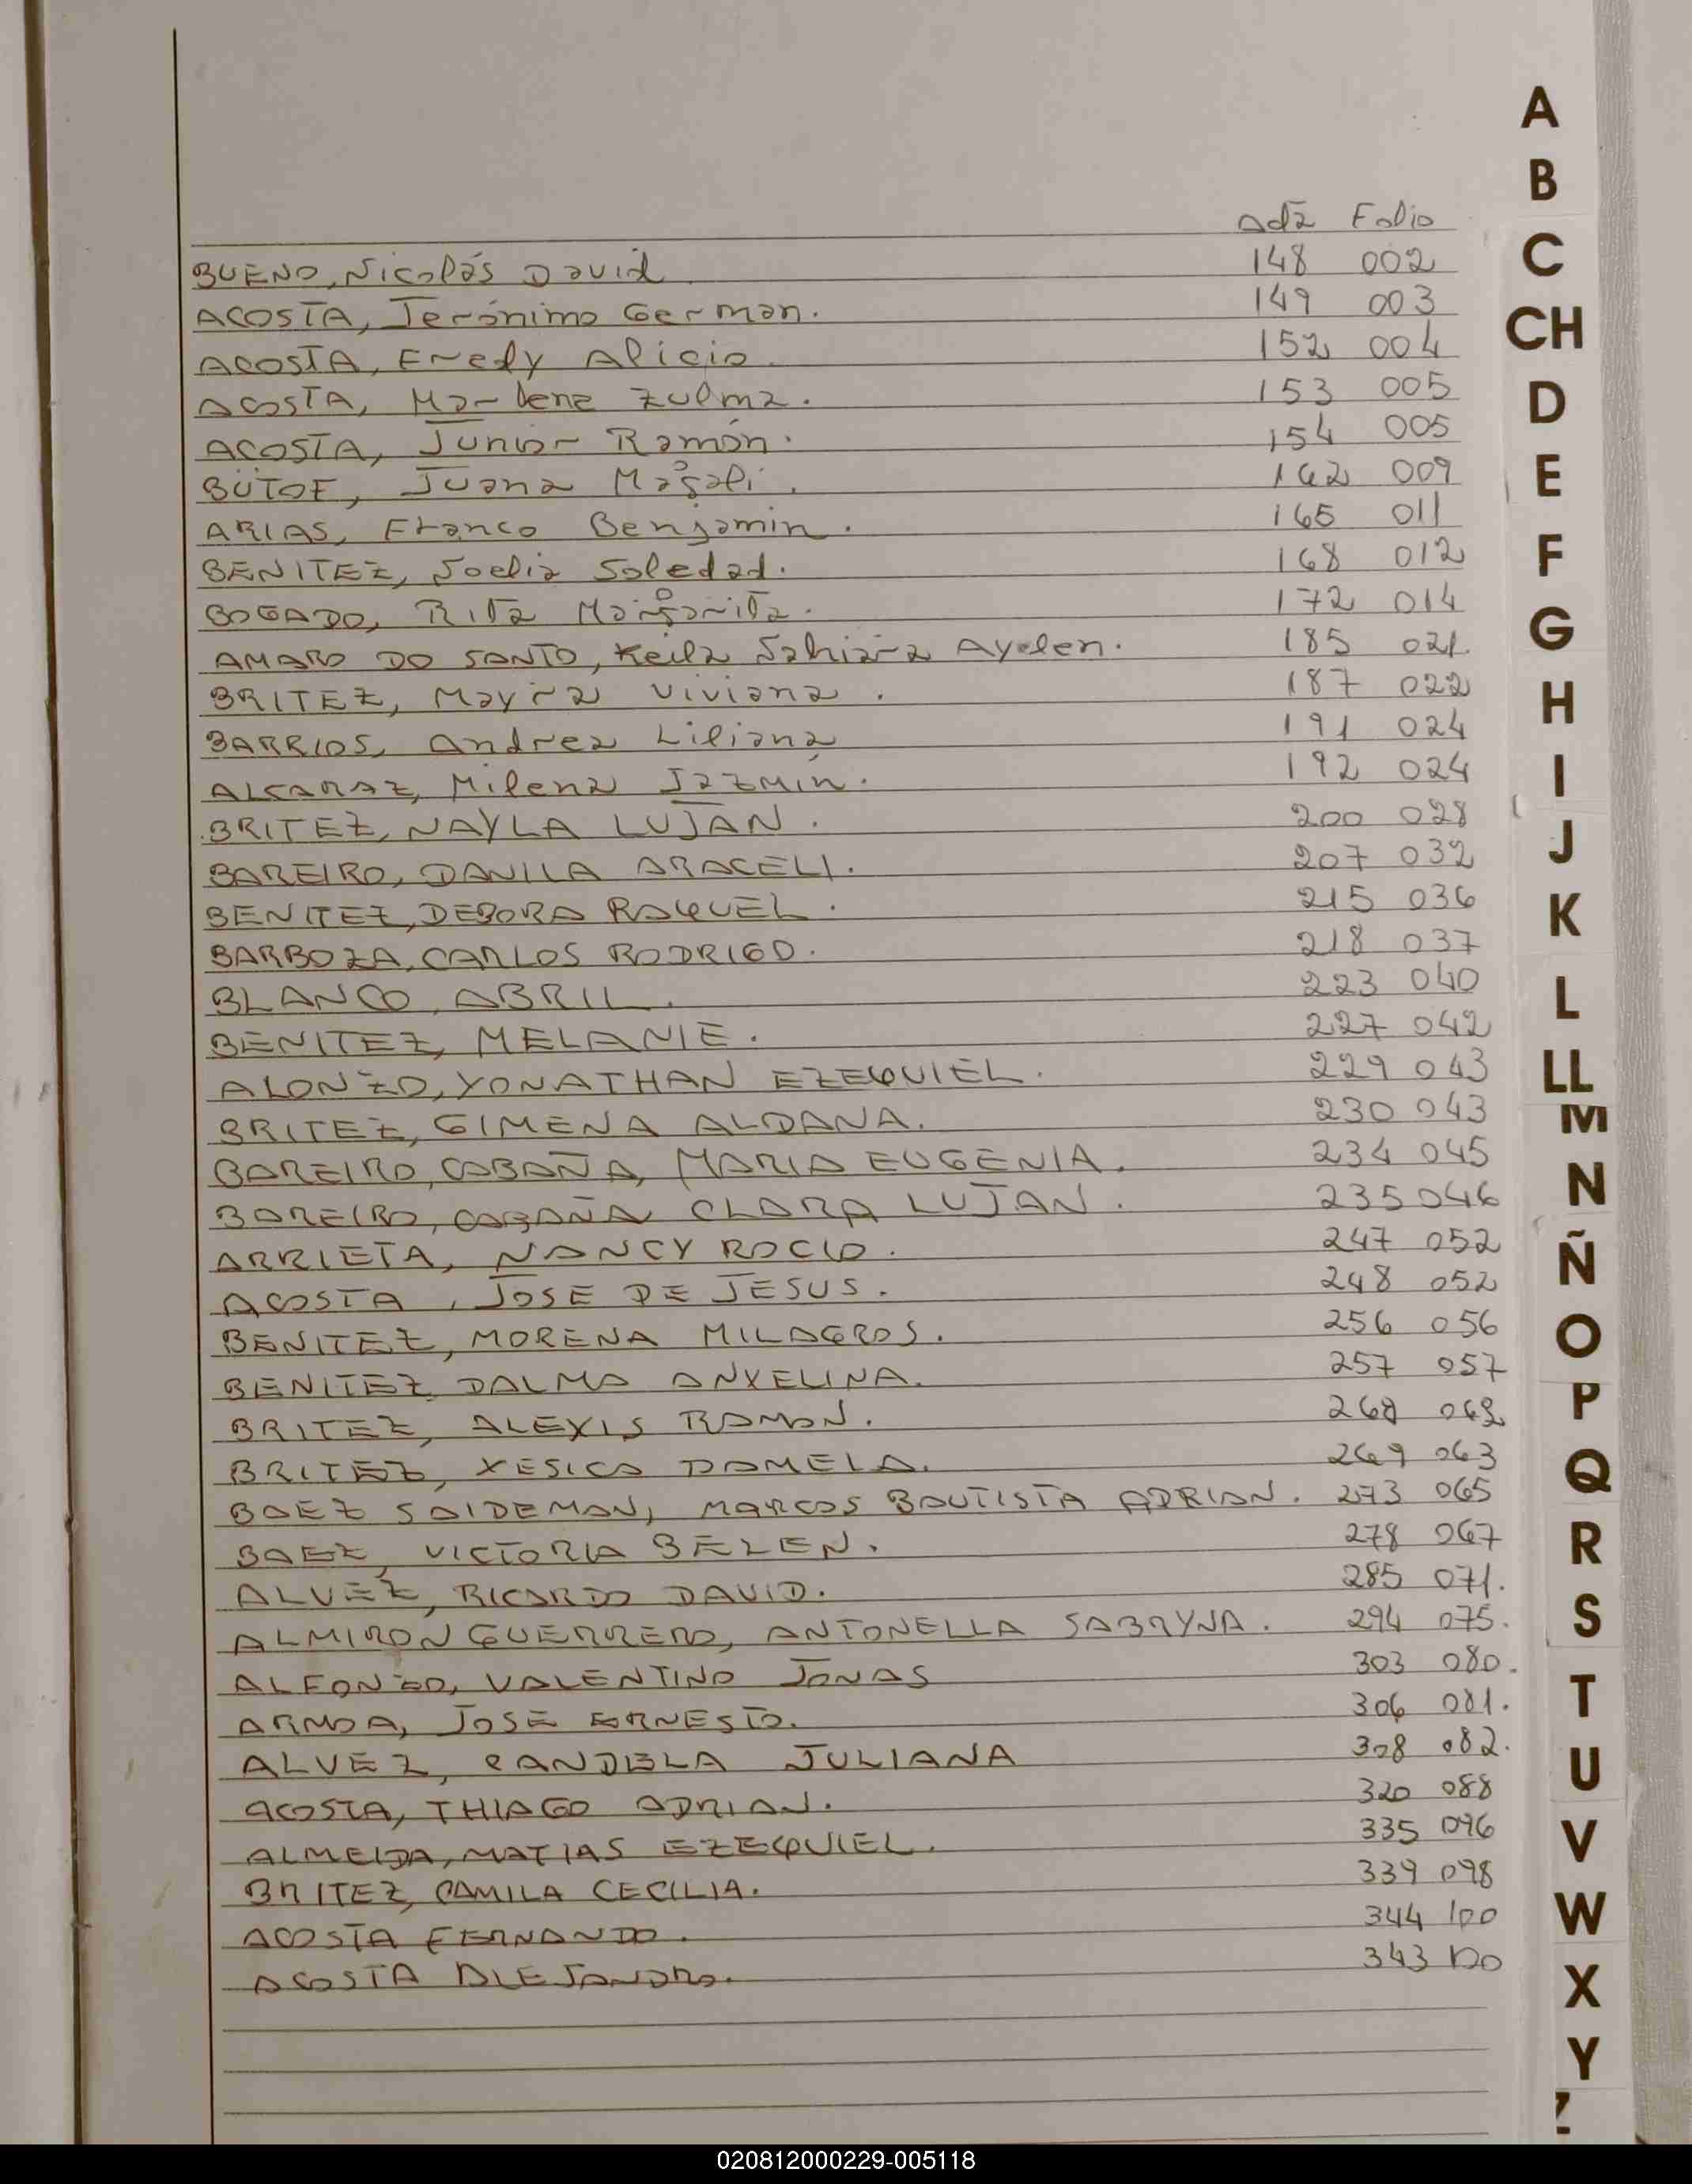 Acta Folio
BUENO, Nicolás David 148 002
ACOSTA, Jerónimo German. 149 003
ACOSTA, Fredy Alicio 152 004
ACOSTA, Marlene Zulma. 153 005
ACOSTA, Junior Ramón. 154 005
BÜTOF, Juana Magali. 162 009
ARIAS, Franco Benjamin. 165 011
BENITEZ, Soledad. 168 012
BOGADO, Rita Margarita. 172 014
AMARO DO SANTO, Keila Sahiara Ayelen. 185 021.
BRITEZ, Mayra Viviana. 187 022
BARRIOS, Andrea Liliana 191 024
ALCARAZ, Milena Jazmín. 192 024
BRITEZ, NAYLA LUJAN. 200 028
BAREIRO, DANILA ARACELI. 207 032
BENITEZ, DEBORA RAQUEL. 215 036
BARBOZA, CARLOS RODRIGO. 218 037
BLANCO, ABRIL. 223 040
BENITEZ, MELANIE. 227 042
ALONZO, YONATHAN EZEQUIEL. 229 043
BRITEZ, GIMENA ALDANA. 230 043
BAREIRO, CABAÑA, MARIA EUGENIA. 234 045
BAREIRO, CABAÑA CLARA LUJAN. 235 046
ARRIETA, NANCY ROCIO. 247 052
ACOSTA, JOSE DE JESUS. 248 052
BENITEZ, MORENA MILAGROS. 256 056
BENITEZ DALMA ANYELINA. 257 057
BRITEZ, ALEXIS RAMON. 268
BRITEZ, YESICA DAMELA. 269 063
BAEZ SAIDEMAN, MARCOS BAUTISTA ADRIAN. 273 065
BAEZ, VICTORIA BELEN. 278 067
ALVEZ, RICARDO DAVID. 285 071.
ALMIRON GUERRERO, ANTONELLA SABRYNA. 294 075.
ALFONZO, VALENTINO JONAS 303 080.
ARMOA, JOSE ERNESTO. 306 081.
ALVEZ, CANDELA JULIANA 308 082.
ACOSTA, THIAGO ADRIAN. 320 088
ALMEIDA, MATIAS EZEQUIEL. 335 096
BRITEZ, CAMILA CECILIA. 339 098
ACOSTA FERNANDO. 344 100
ACOSTA ALEJANDRO. 343 100
A
B
C
CH
D
E
F
G
H
I
J
K
L
LL
M
N
Ñ
O
P
Q
R
S
T
U
V
W
X
Y
020812000229-005118